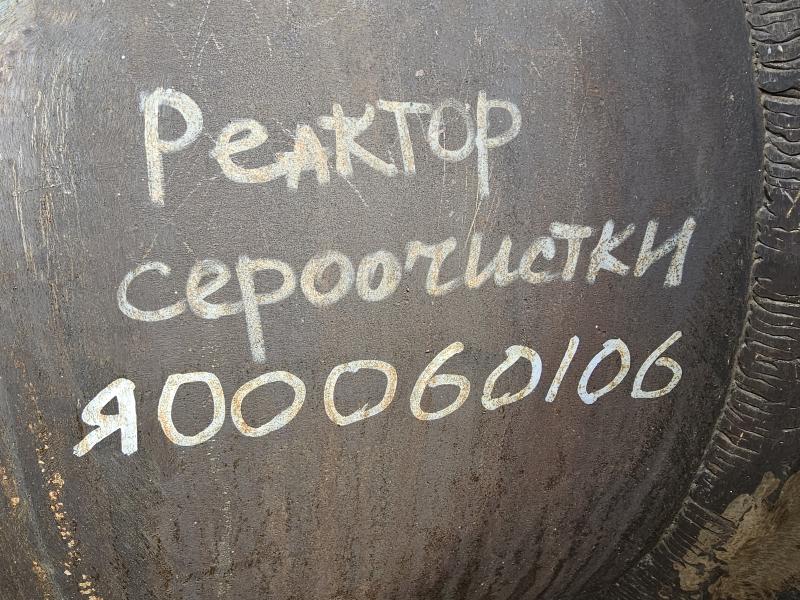 Реактор
сероочистки
Я00060106